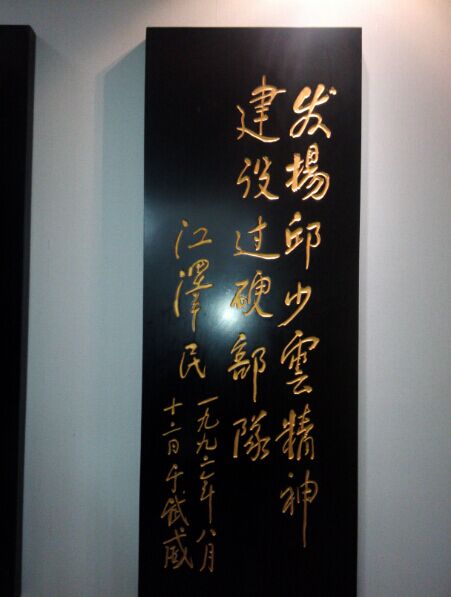 发揚邱少雲精神
建设过硬部隊
江澤民
一九九二年八月
十二日于武威